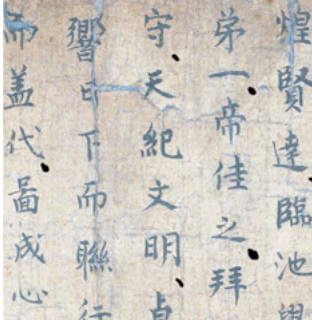 煌賢達臨池
弟一帝佳之拜
守天紀文明貞
響日下而聯行
而蓋代啚成心